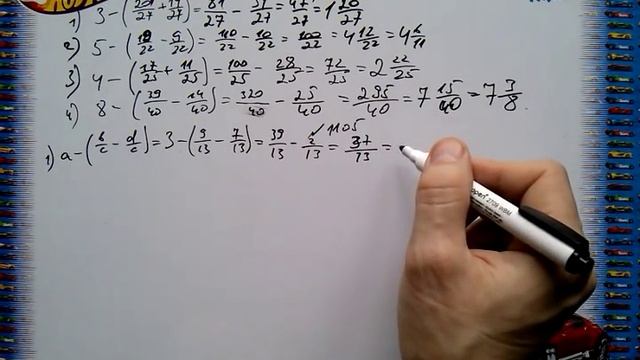 1) 3 - (20/27 + 14/27) = 81/27 - 34/27 = 47/27 = 1 20/27
2) 5 - (19/22 - 9/22) = 110/22 - 10/22 = 100/22 = 4 12/22 = 4 6/11
3) 4 - (17/25 + 11/25) = 100/25 - 28/25 = 72/25 = 2 22/25
4) 8 - (39/40 - 14/40) = 320/40 - 25/40 = 295/40 = 7 15/40 = 7 3/8.
1) a - (b/c - d/c) = 3 - (9/13 - 7/13) = 39/13 - 2/13 = 37/13 =
1105
2709 WBM